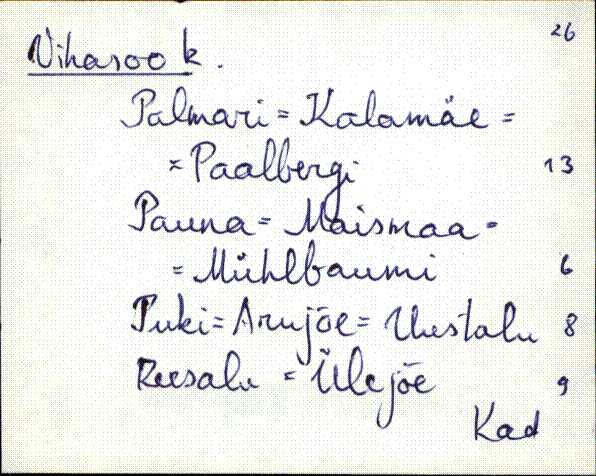 26
Vihasoo k.
Palmari = Kalamäe =
= Paalbergi 13
Pauna = Maismaa =
= Mühlbaumi 6
Puki = Arujõe = Uustalu 8
Reesalu = Ülejõe 9
Kad